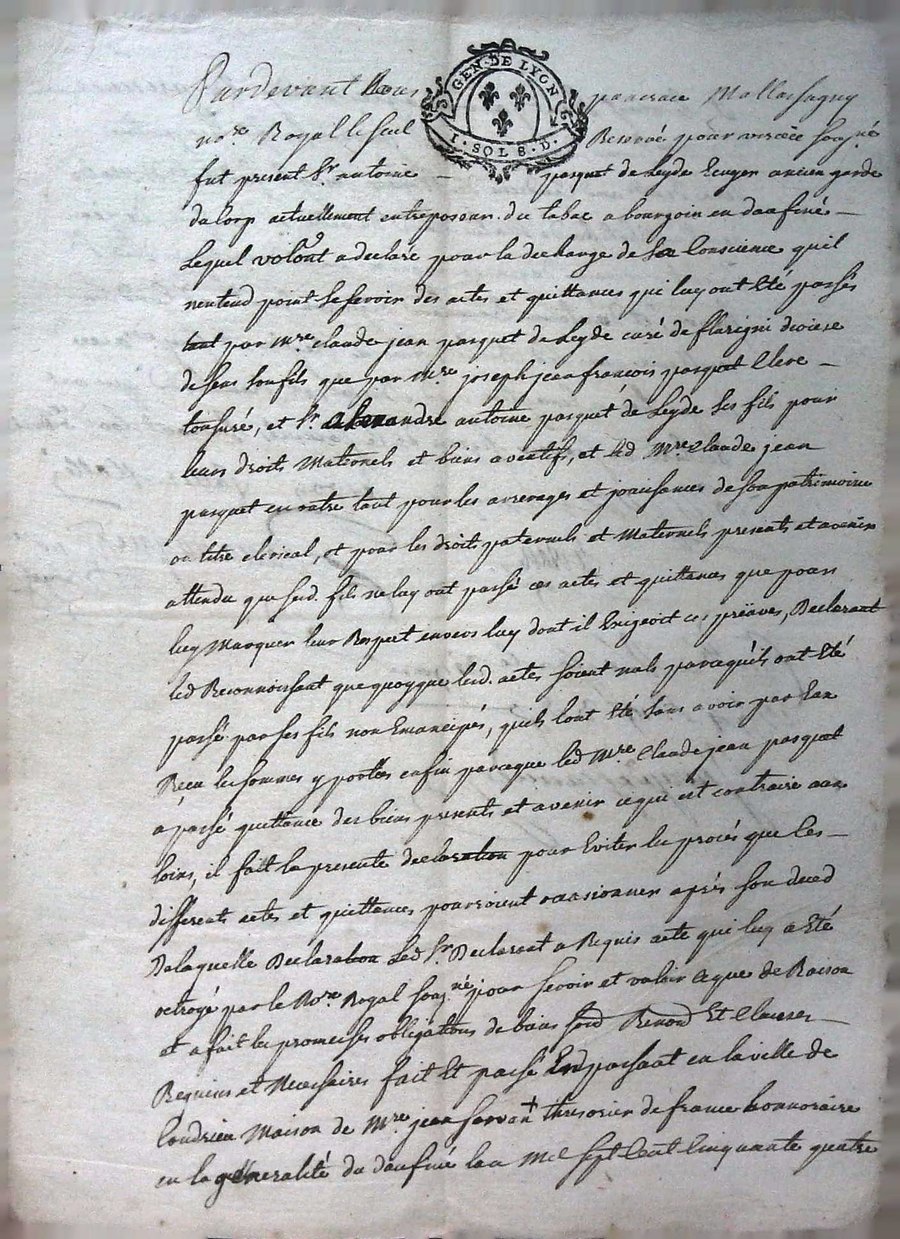 Pardevant Nous pancrace Mallassagny
GEN·DE LYON
1·SOL 8·D·
no.re Royal le seul Reservé pour vienne sous.né
fut present S.r antoine pasquet de Leyde Ecuyer ancien garde
du Corp actuellement entreposeur du tabac a bourgoin en daufiné
Lequel volont a declaré pour la decharge de sa Conscience qu'il
n'entend point se servir des actes et quittances qui luy ont Eté passés
tant par M.re claude jean pasquet de Leyde curé de flavigni diocese
de sens son fils que par M.re joseph jean francois pasquet Clerc
tonsuré, et S.r alexandre antoine pasquet de Leyde ses fils pour
leurs droits Maternels et biens aventifs, et led M.re claude jean
pasquet en outre tout pour les arrerages et jouissances de son patrimoine
ou titre clerical, et pour les droits paternels et Maternels presents et avenir
attendu que sesd. fils ne luy ont passé ces actes et quittances que pour
luy Marquer leur Respect envers luy dont il Exigeoit ces preuves, Declarant
led Reconnoissant que quoyque lesd. actes soient nuls parcequ'ils ont Eté
passé par ses fils non Emancipés, qu'ils l'ont Eté sans avoir par Eux
Reçu les sommes y portées enfin parceque led M.re Claude jean pasquet
a passé quittance des biens presents et avenir ce qui est contraire aux
loix, il fait la presente declaration pour Eviter les procés que les
differents actes et quittances pourroient occasionner aprés son deced
De laquelle Declaration Led S.r Declarant a Requis acte qui luy a Eté
octroyé par le No.re Royal sous.né pour servir et valoir ce que de Raison
et a fait les promesses obligations de biens soud Renond Et Clauses
Requises et Necessaires fait Et passé En passant en la ville de
Condrieu Maison de M.re jean servan + thresorier de france honnoraire
en la generalité du daufiné l'an Mil sept Cent Cinquante quatre